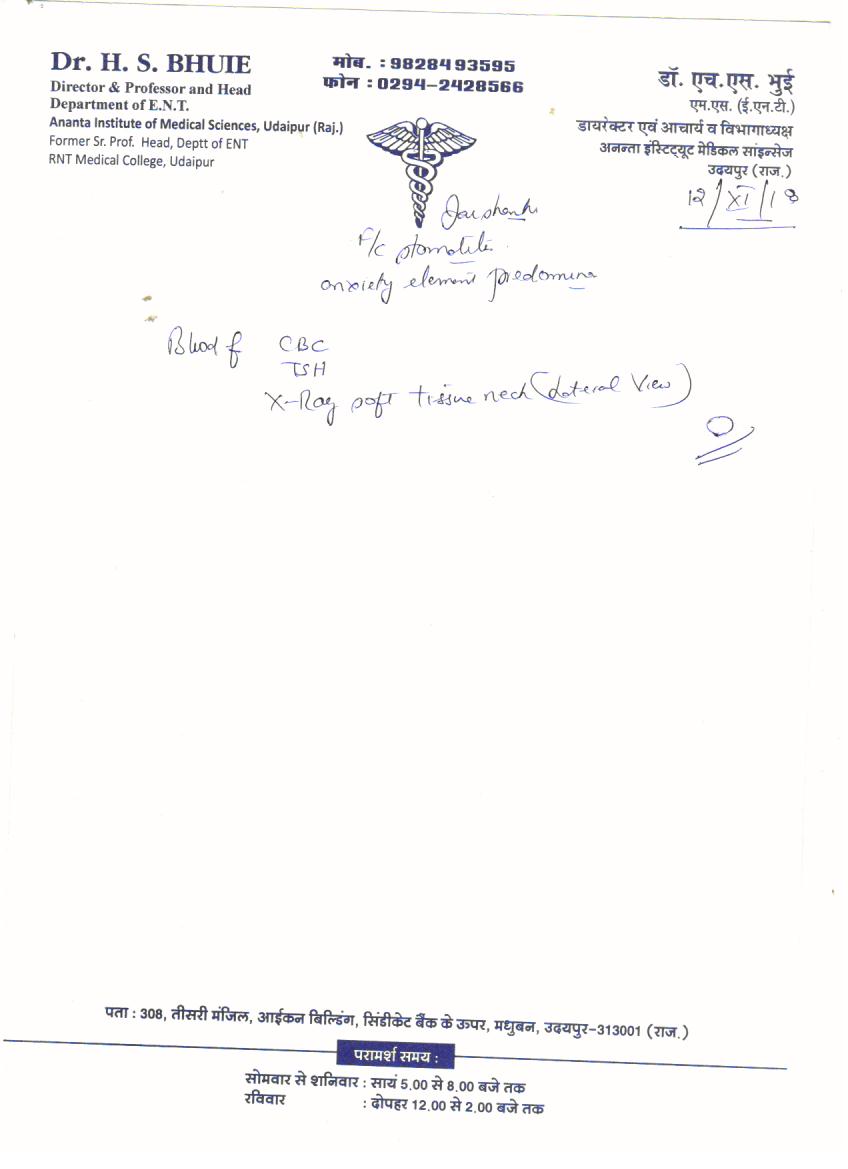 Dr. H. S. BHUIE
Director & Professor and Head
Department of E.N.T.
Ananta Institute of Medical Sciences, Udaipur (Raj.)
Former Sr. Prof. Head, Deptt of ENT
RNT Medical College, Udaipur
मोब. : 98284 93595
फोन : 0294-2428566
डॉ. एच.एस. भुई
एम.एस. (ई.एन.टी.)
डायरेक्टर एवं आचार्य व विभागाध्यक्ष
अनन्ता इंस्टिट्यूट मेडिकल सांइन्सेज
उदयपुर (राज.)
12/XI/18
F/c
anxiety element
Blood f CBC
TSH
X-Ray soft tissue neck (Lateral View)
पता : 308, तीसरी मंजिल, आईकन बिल्डिंग, सिंडीकेट बैंक के ऊपर, मधुबन, उदयपुर-313001 (राज.)
परामर्श समय :
सोमवार से शनिवार : सायं 5.00 से 8.00 बजे तक
रविवार : दोपहर 12.00 से 2.00 बजे तक